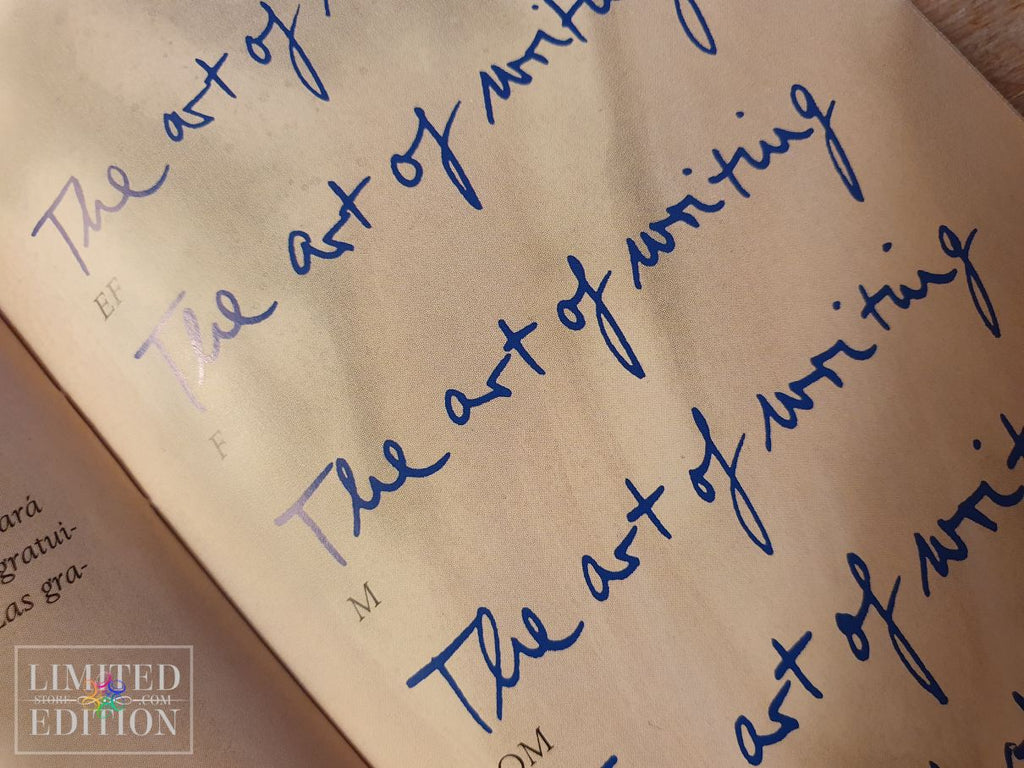 The art of
EF
The art of writing
F
The art of writing
M
The art of writing
OM
art of
ará
gratui-
Las gra-
LIMITED
STORE .COM
EDITION